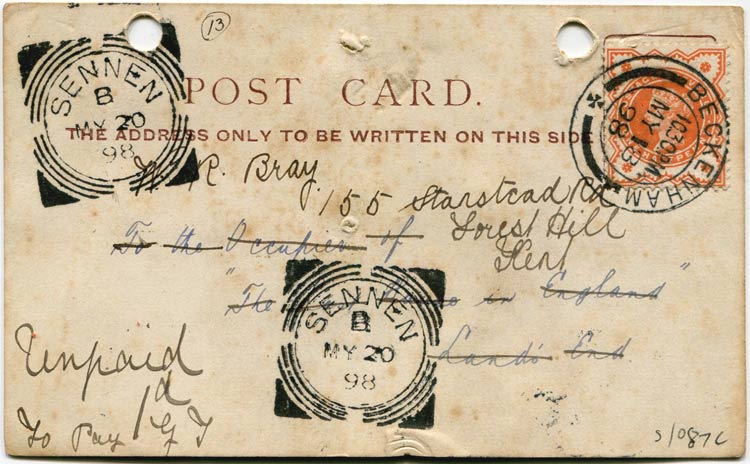 13
SENNEN
B
MY 20
98
BECKENHAM
10.30 PM
MY 18
98
POST CARD.
THE ADDRESS ONLY TO BE WRITTEN ON THIS SIDE
W. R. Bray
155 Stanstead Rd
To the Occupier of Forest Hill
Kent
"The in England"
Land's End
SENNEN
B
MY 20
98
Unpaid
1d
To Pay
S/087C